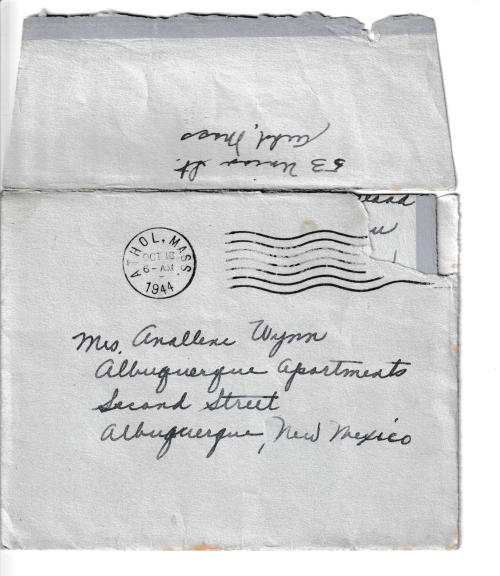 53 Union St.
Athol, Mass
ATHOL, MASS.
OCT 18
6-AM
1944
Mrs. Anallene Wynn
Albuquerque Apartments
Second Street
Albuquerque, New Mexico